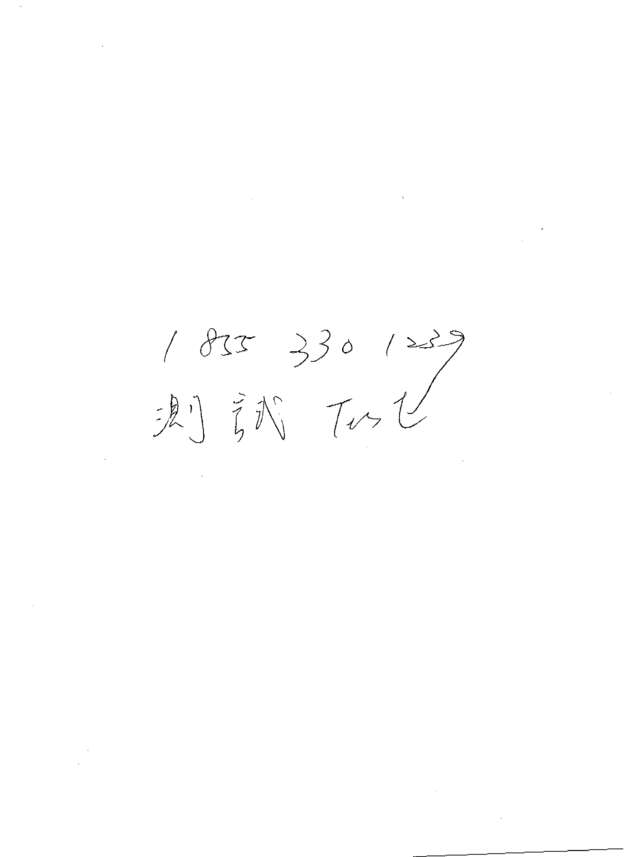 1 855 330 1239
測試 Test